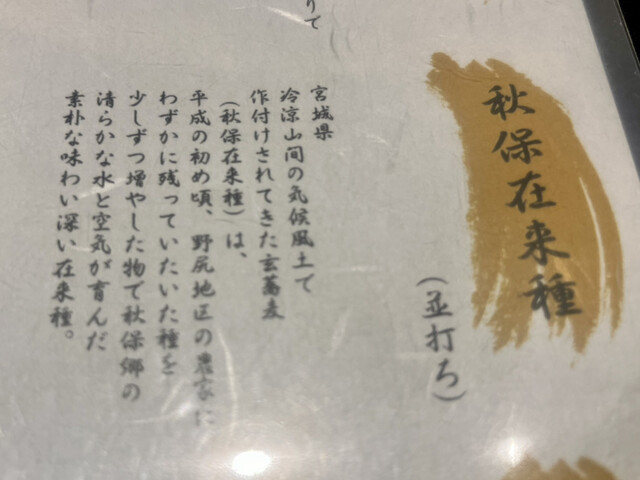 秋保在来種
(並打ち)
宮城県
冷涼山間の気候風土で
作付けされてきた玄蕎麦
(秋保在来種)は、
平成の初め頃、野尻地区の農家に
わずかに残っていたいた種を
少しずつ増やした物で秋保郷の
清らかな水と空気が育んだ
素朴な味わい深い在来種。
りで